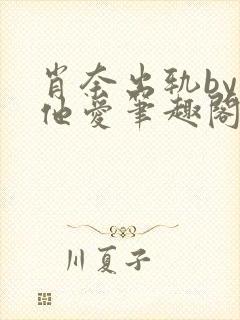 肖奈出轨by
他爱笔趣阁
川夏子